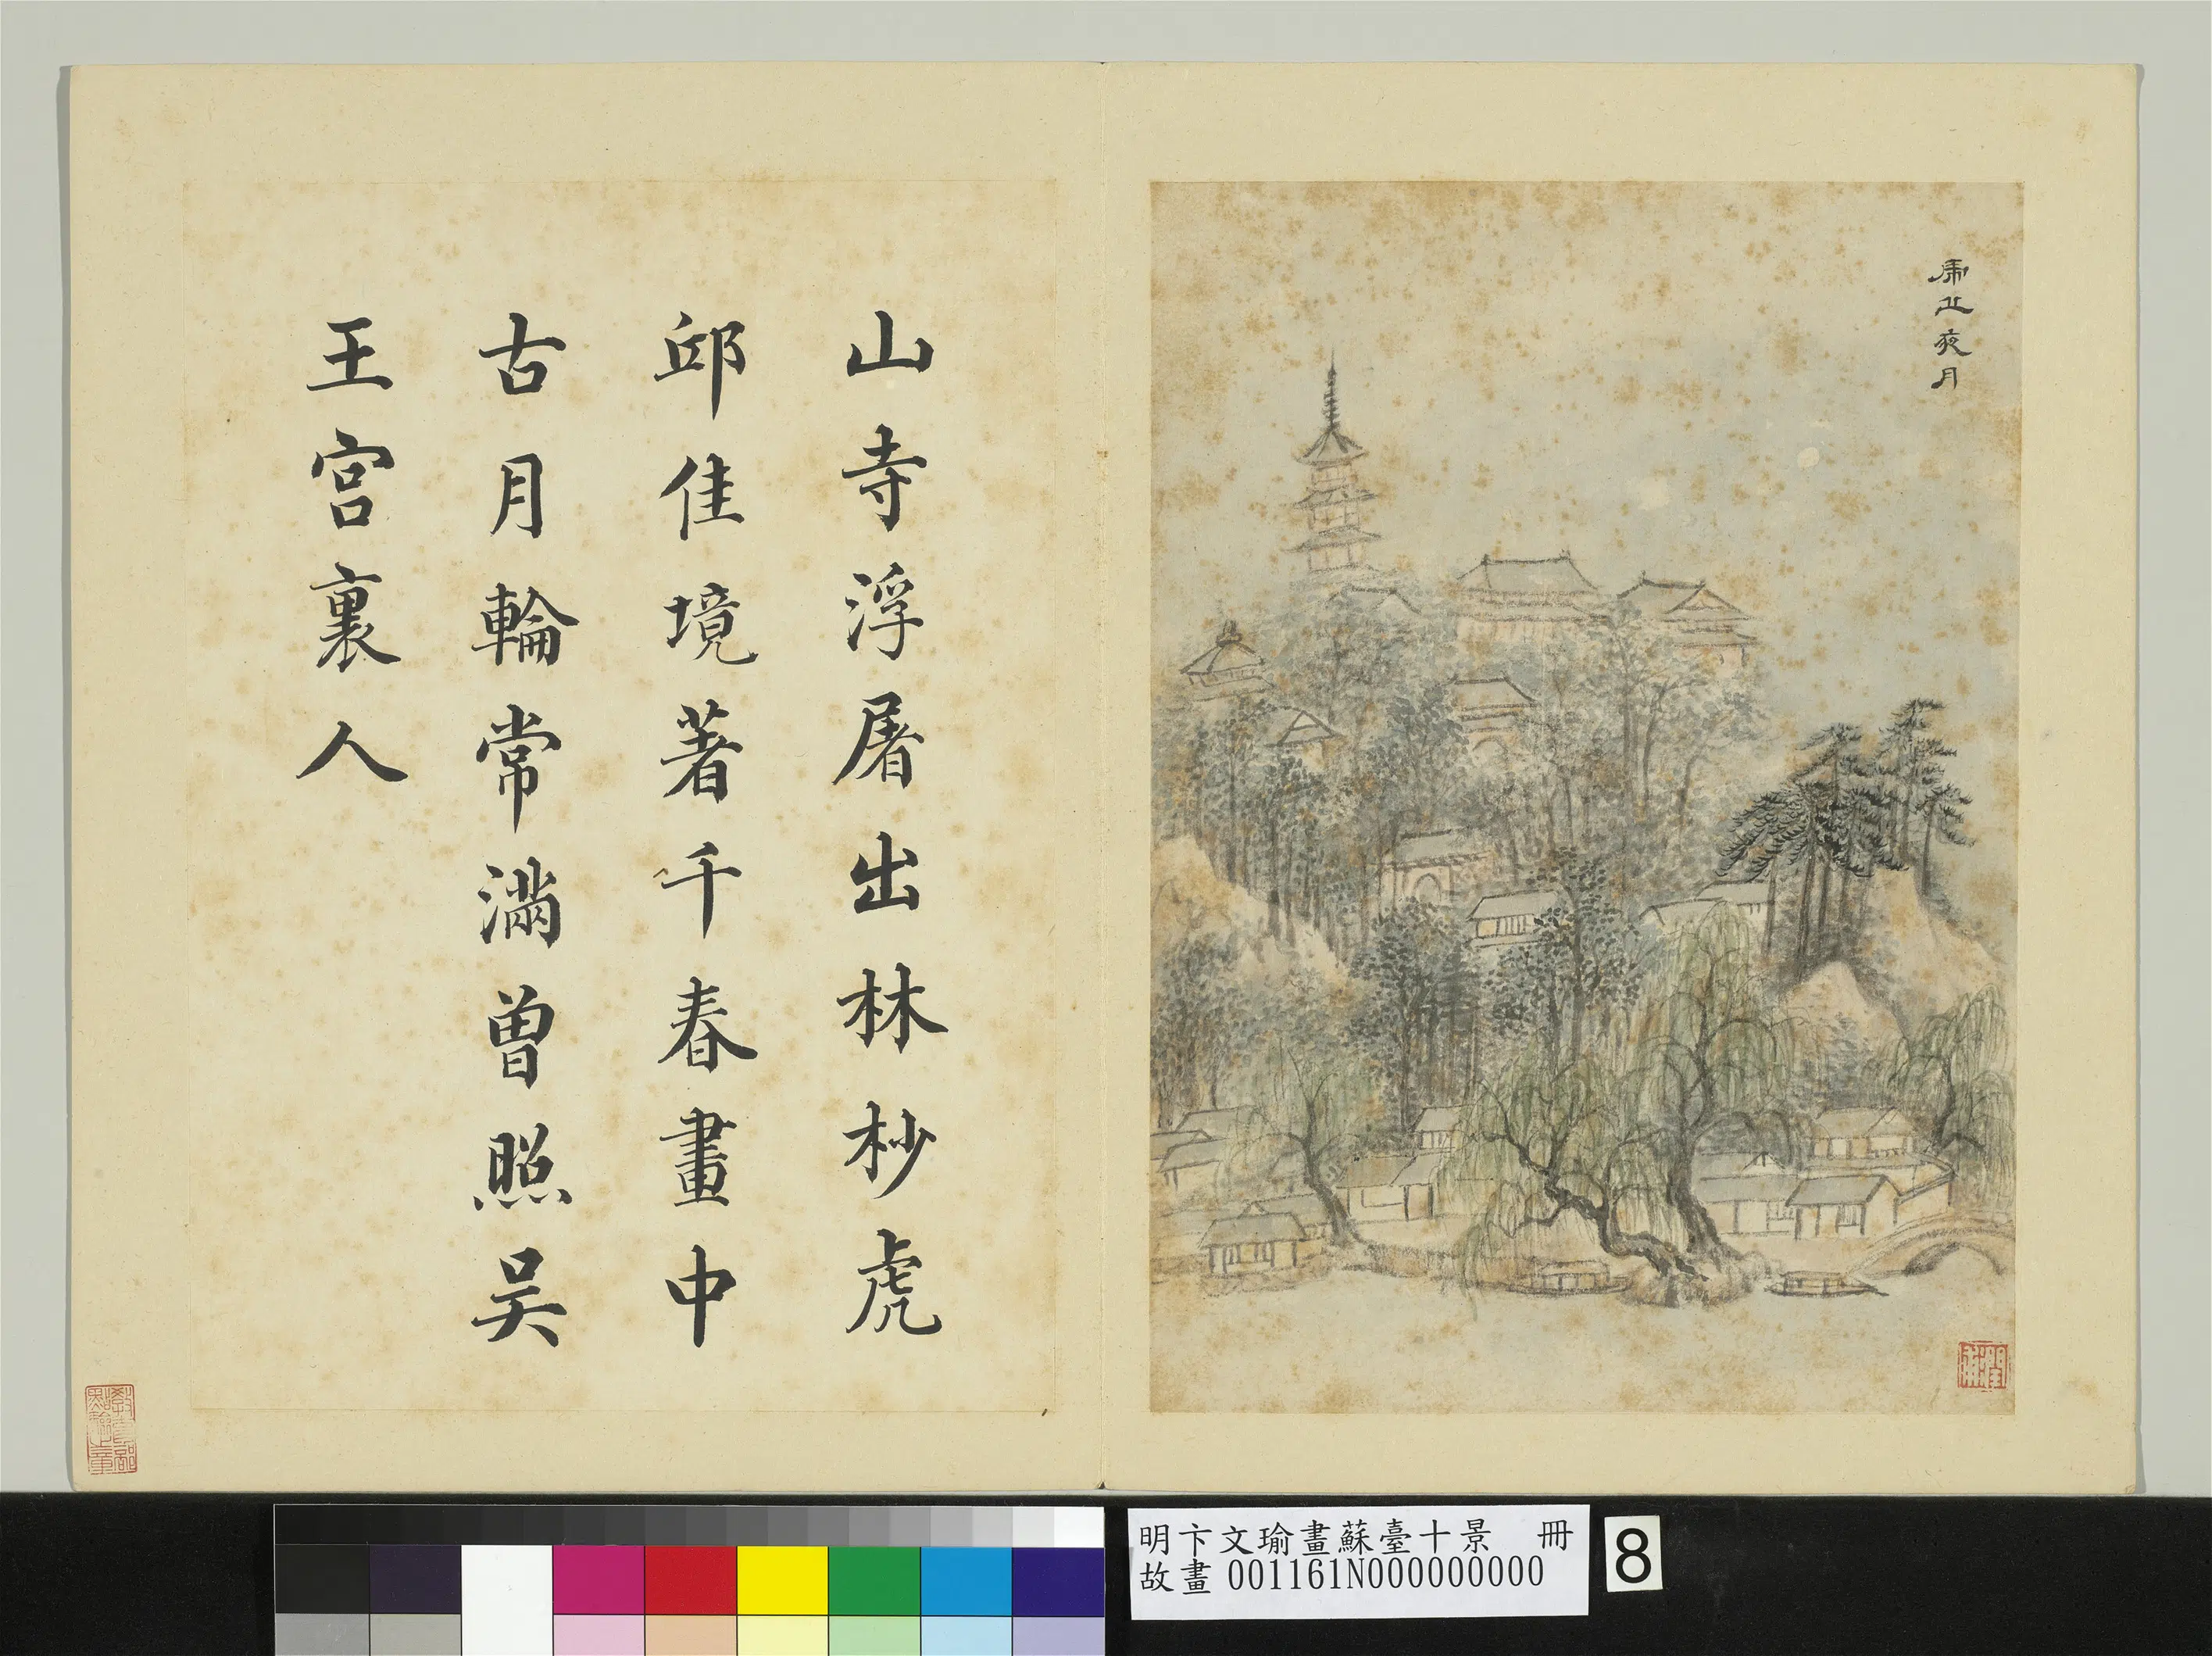 虎丘夜月
潤甫
山寺浮屠出林杪虎
邱佳境著千春畫中
古月輪常滿曽照吴
王宮裏人
教育部
點驗之章
明卞文瑜畫蘇臺十景 冊
故畫 001161N000000000
8